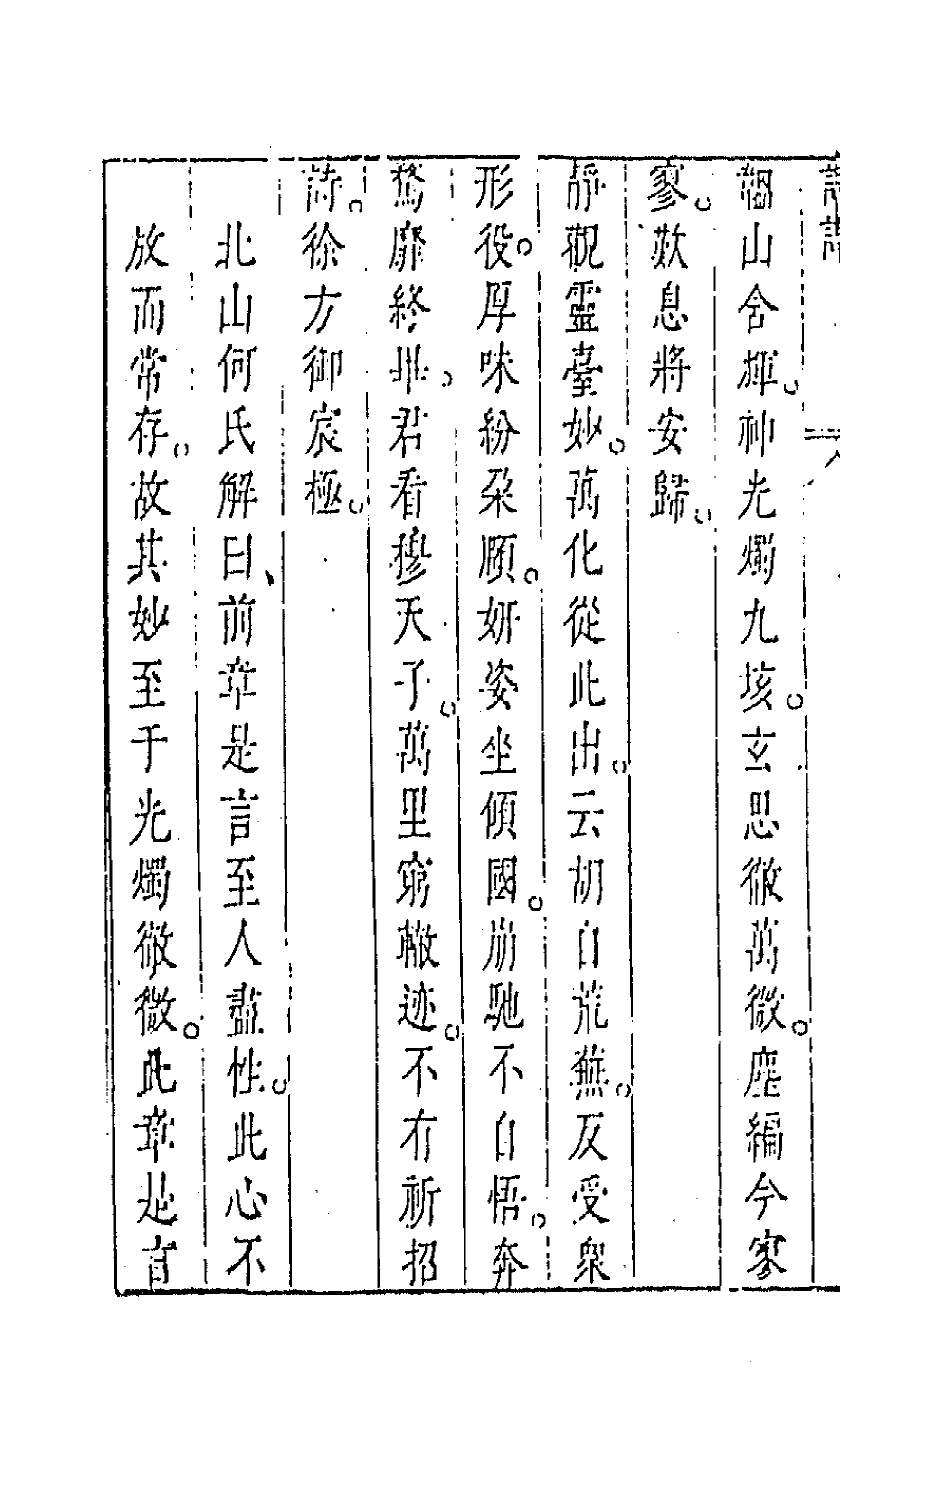 韞山含輝。神光燭九垓。玄思徹萬微。塵編今寥
寥。歎息將安歸。
靜觀靈臺妙。萬化從此出。云胡自荒蕪。反受衆
形役。厚味紛朶頤。妍姿坐傾國。崩馳不自悟。奔
騖靡終畢。君看穆天子。萬里窮轍迹。不有祈招
詩。徐方御宸極。
北山何氏解曰、前章是言至人盡性。此心不
放而常存。故其妙至于光燭徹微。此章是言